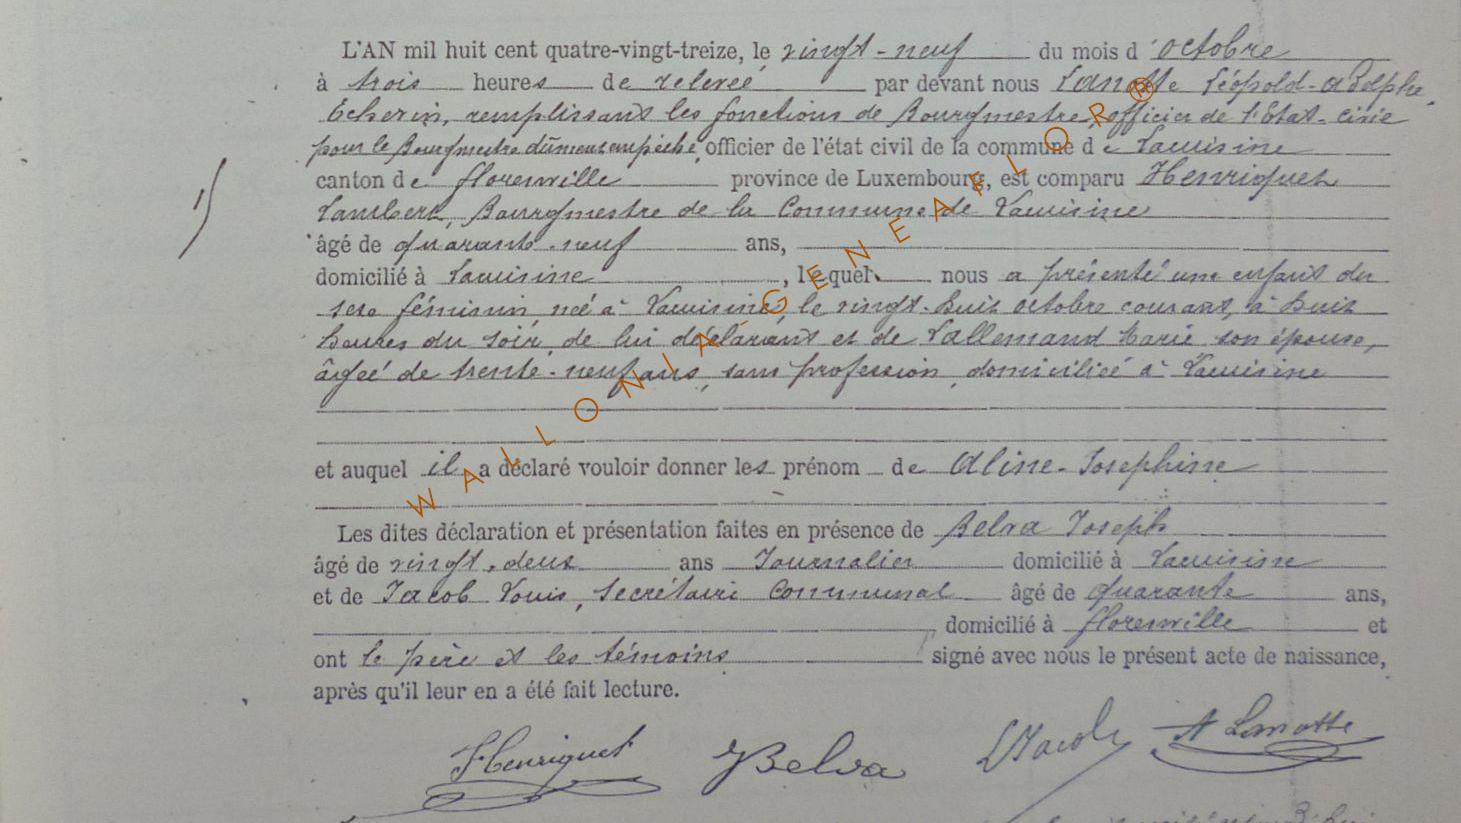 L'AN mil huit cent quatre-vingt-treize, le vingt-neuf du mois d'octobre
à trois heures de relevée par devant nous Lamotte Léopold-Adolphe
Echevin, remplissant les fonctions de Bourgmestre, officier de l'Etat-civil
pour le Bourgmestre dûment empêché, officier de l'état civil de la commune de Lacuisine
canton de florenville province de Luxembourg, est comparu Henriquet
Lambert, Bourgmestre de la Commune de Lacuisine
1/
âgé de quarante-neuf ans,
domicilié à Lacuisine, lequel nous a présenté un enfant du
sexe féminin né à Lacuisine, le vingt-huit octobre courant, à huit
heures du soir, de lui déclarant et de Lallemand Marie son épouse,
âgée de trente-neuf ans, sans profession, domiciliée à Lacuisine
et auquel il a déclaré vouloir donner les prénom de Aline-Josephine
Les dites déclaration et présentation faites en présence de Belva Joseph
âgé de vingt-deux ans Journalier domicilié à Lacuisine
et de Jacob Louis, Secrétaire Communal âgé de quarante ans,
domicilié à florenville et
ont le père et les témoins signé avec nous le présent acte de naissance,
après qu'il leur en a été fait lecture.
Henriquet JBelva LJacob A Lamotte
WALLONIA-GENEAFLOR®